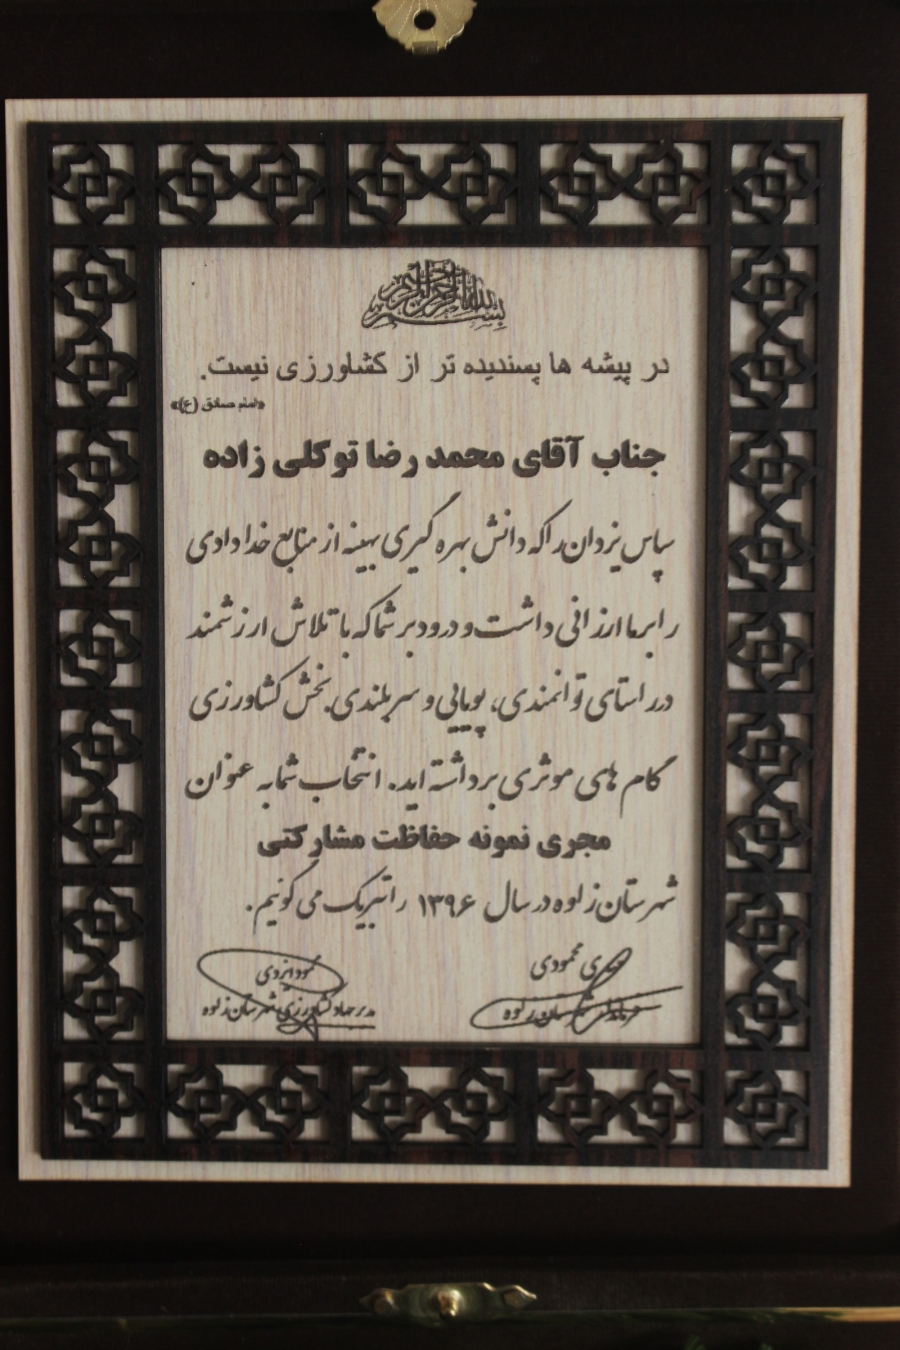 بسم الله الرحمن الرحیم
در پیشه ها پسندیده تر از کشاورزی نیست.
«امام صادق (ع)»
جناب آقای محمد رضا توکلی زاده
سپاس یزدان را که دانش بهره گیری بهینه از منابع خدادادی
را بر ما ارزانی داشت و درود بر شما که با تلاش ارزشمند
در راستای توانمندی، پویایی و سربلندی بخش کشاورزی
گام های موثری برداشته اید. انتخاب شما به عنوان
مجری نمونه حفاظت مشارکتی
شهرستان زاوه در سال ۱۳۹۶ را تبریک می گوییم.
محمودی
فرماندار شهرستان زاوه
ایزدی
مدیر جهاد کشاورزی شهرستان زاوه